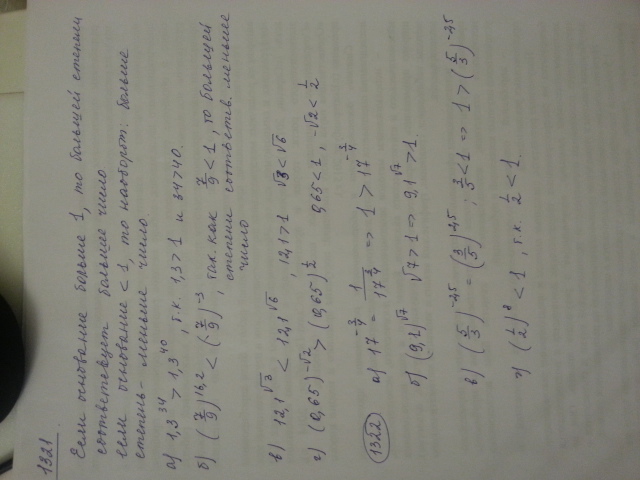 1321.
Если основание больше 1, то большей степени
соответствует большее число
если основание < 1, то наоборот: больше
степень - меньше число.
а) 1,3³⁴ > 1,3⁴⁰, т.к. 1,3 > 1 и 34 > 40.
б) (7/9)^16,2 < (7/9)^-3, так как 7/9 < 1, то большей
степени соответств. меньшее
число
в) 12,1^√3 < 12,1^√6, 12,1 > 1 √3 < √6
г) (0,65)^-√2 > (0,65)^1/2 0,65 < 1, -√2 < 1/2
1322 а) 17^-3/4 = 1/17^3/4 => 1 > 17^-3/4
б) (9,1)^√7 √7 > 1 => 9,1^√7 > 1.
в) (5/3)^-2,5 = (3/5)^2,5; 3/5 < 1 => 1 > (5/3)^-2,5
г) (1/2)^8 < 1, т.к. 1/2 < 1.